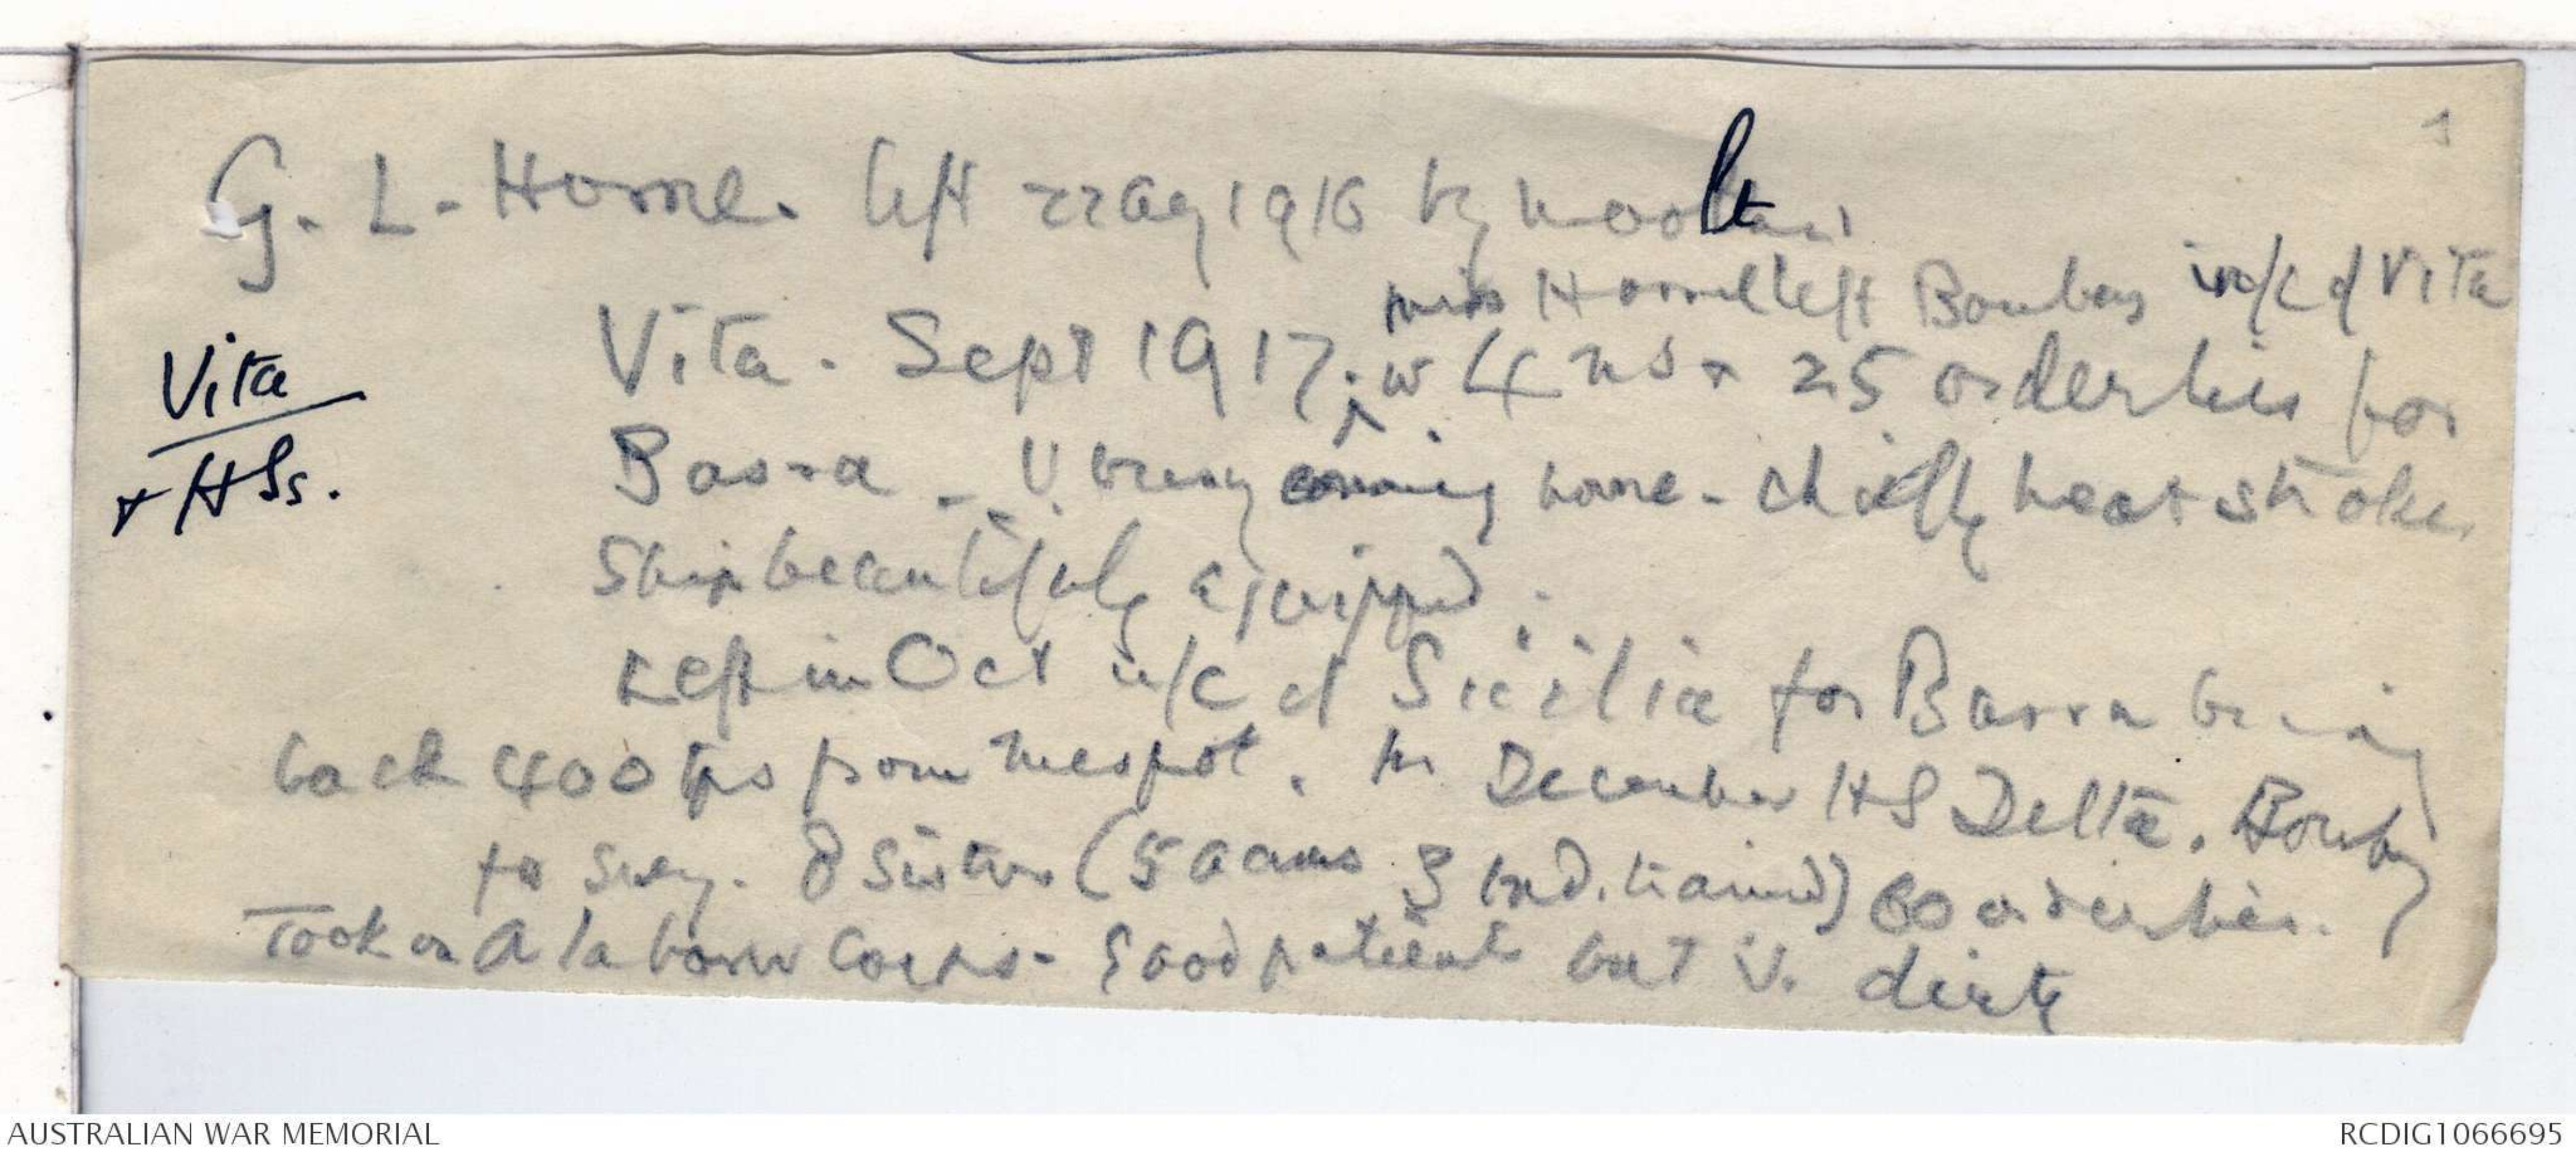 1
G. L. Horne. left 22 Ag 1916 by Mooltan
Miss Horne left Bombay in/c of Vita
Vita. Sept 1917. ^ w 4 ns & 25 orderlies for
Vita
& HSs.
Basra _ V. busy coming home - chiefly heat stroke.
Ship beautifully equipped.
Left in Oct i/c of Sicilia for Basra bring
back 400 tps from Mespot. In December HS Delta. Bombay
to Suez. 8 Sisters (5 aans 3 Ind. trained) 60 orderlies.
Took on a labour Corps - Good patients but V. dirty
AUSTRALIAN WAR MEMORIAL
RCDIG1066695